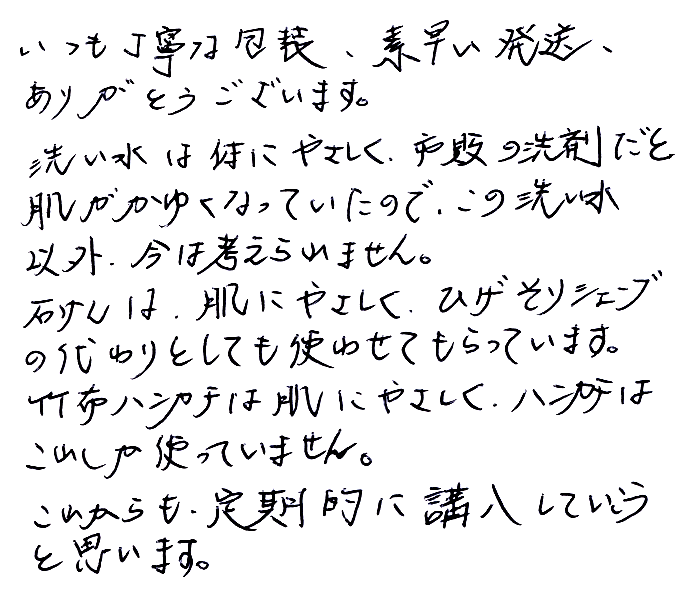 いつも丁寧な包装、素早い発送、
ありがとうございます。
洗い水は体にやさしく、市販の洗剤だと
肌がかゆくなっていたので、この洗い水
以外、今は考えられません。
石けんは、肌にやさしく、ひげそりシェーブ
の代わりとしても使わせてもらっています。
竹布ハンカチは肌にやさしく、ハンカチは
これしか使っていません。
これからも、定期的に講入していこう
と思います。